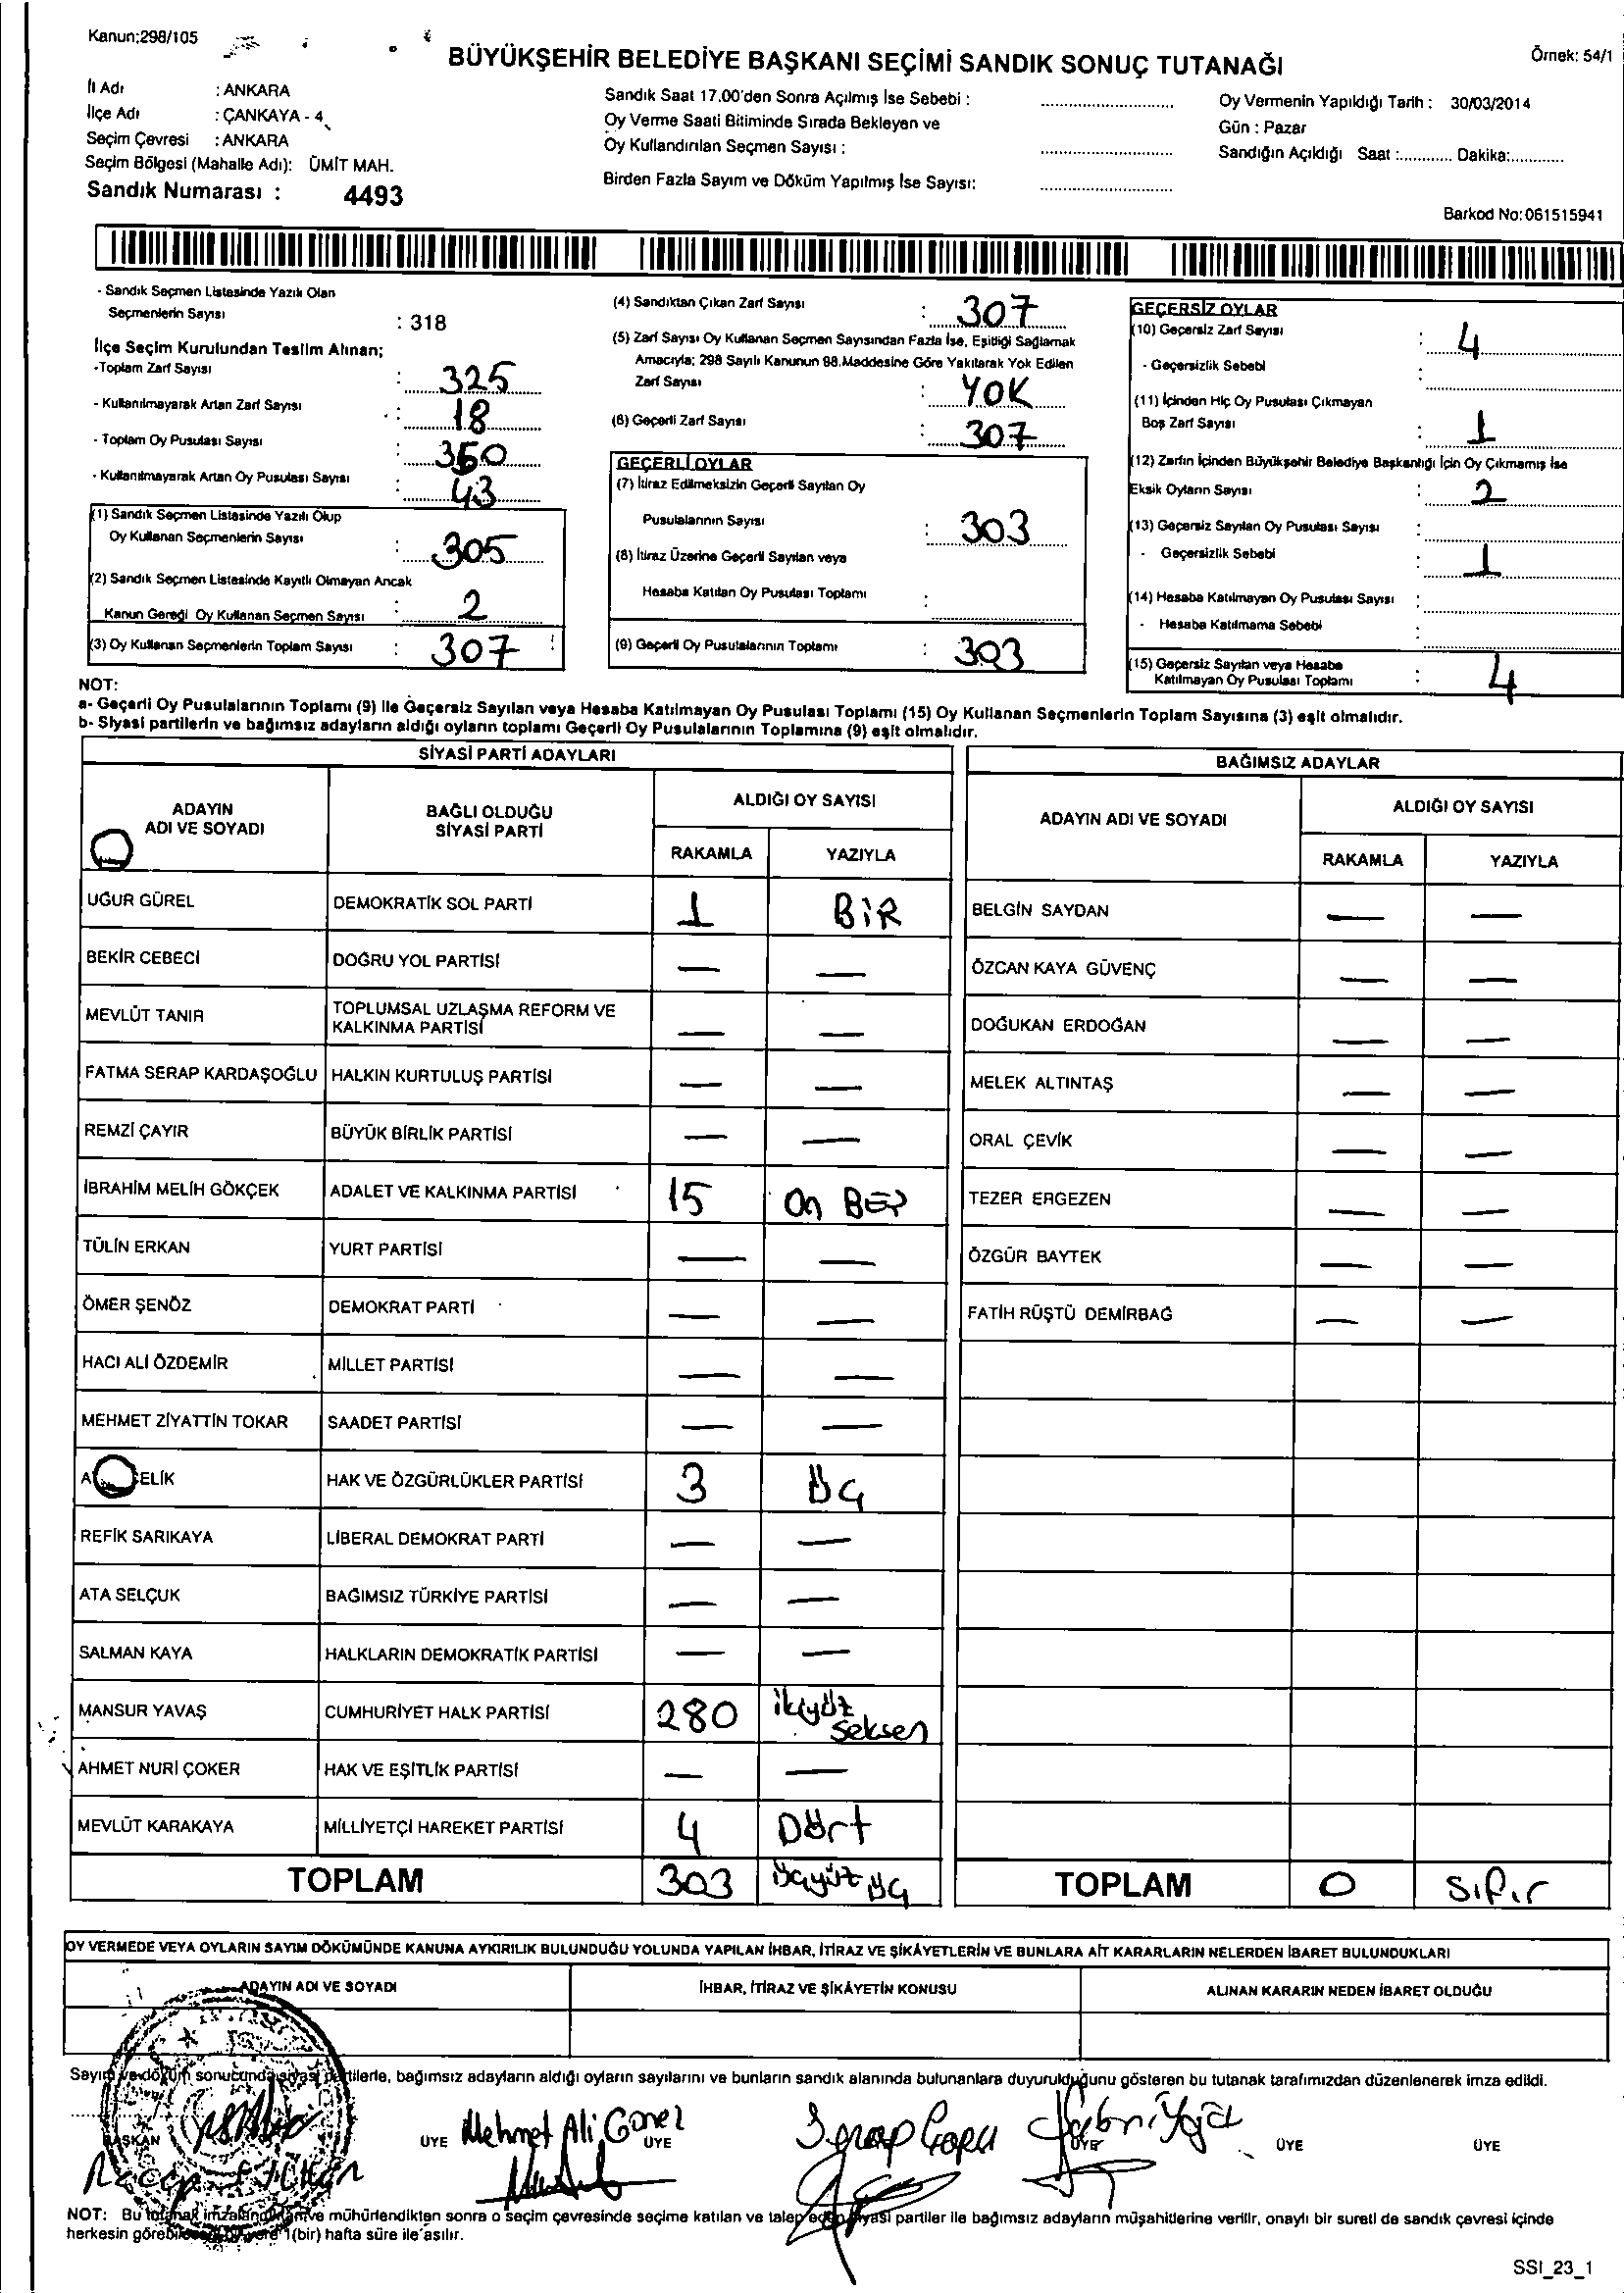 Kanun;298/105
BÜYÜKŞEHİR BELEDİYE BAŞKANI SEÇİMİ SANDIK SONUÇ TUTANAĞI
Örnek: 54/1
İl Adı : ANKARA
İlçe Adı : ÇANKAYA - 4
Seçim Çevresi : ANKARA
Seçim Bölgesi (Mahalle Adı): ÜMİT MAH.
Sandık Numarası : 4493
Sandık Saat 17.00'den Sonra Açılmış İse Sebebi :
Oy Verme Saati Bitiminde Sırada Bekleyen ve
Oy Kullandırılan Seçmen Sayısı :
Birden Fazla Sayım ve Döküm Yapılmış İse Sayısı:
Oy Vermenin Yapıldığı Tarih : 30/03/2014
Gün : Pazar
Sandığın Açıldığı Saat :............ Dakika:............
Barkod No:061515941
- Sandık Seçmen Listesinde Yazılı Olan
Seçmenlerin Sayısı : 318
İlçe Seçim Kurulundan Teslim Alınan;
-Toplam Zarf Sayısı : 325
- Kullanılmayarak Artan Zarf Sayısı : 18
- Toplam Oy Pusulası Sayısı : 350
- Kullanılmayarak Artan Oy Pusulası Sayısı : 43
(1) Sandık Seçmen Listesinde Yazılı Olup
Oy Kullanan Seçmenlerin Sayısı : 305
(2) Sandık Seçmen Listesinde Kayıtlı Olmayan Ancak
Kanun Gereği Oy Kullanan Seçmen Sayısı : 2
(3) Oy Kullanan Seçmenlerin Toplam Sayısı : 307
(4) Sandıktan Çıkan Zarf Sayısı : 307
(5) Zarf Sayısı Oy Kullanan Seçmen Sayısından Fazla İse, Eşitliği Sağlamak
Amacıyla; 298 Sayılı Kanunun 98.Maddesine Göre Yakılarak Yok Edilen
Zarf Sayısı : YOK
(6) Geçerli Zarf Sayısı : 307
GEÇERLİ OYLAR
(7) İtiraz Edilmeksizin Geçerli Sayılan Oy
Pusulalarının Sayısı : 303
(8) İtiraz Üzerine Geçerli Sayılan veya
Hesaba Katılan Oy Pusulası Toplamı :
(9) Geçerli Oy Pusulalarının Toplamı : 303
GEÇERSİZ OYLAR
(10) Geçersiz Zarf Sayısı : 4
- Geçersizlik Sebebi :
(11) İçinden Hiç Oy Pusulası Çıkmayan
Boş Zarf Sayısı : 1
(12) Zarfın İçinden Büyükşehir Belediye Başkanlığı İçin Oy Çıkmamış İse
Eksik Oyların Sayısı : 2
(13) Geçersiz Sayılan Oy Pusulası Sayısı :
- Geçersizlik Sebebi : 1
(14) Hesaba Katılmayan Oy Pusulası Sayısı :
- Hesaba Katılmama Sebebi :
(15) Geçersiz Sayılan veya Hesaba
Katılmayan Oy Pusulası Toplamı : 4
NOT:
a- Geçerli Oy Pusulalarının Toplamı (9) ile Geçersiz Sayılan veya Hesaba Katılmayan Oy Pusulası Toplamı (15) Oy Kullanan Seçmenlerin Toplam Sayısına (3) eşit olmalıdır.
b- Siyasi partilerin ve bağımsız adayların aldığı oyların toplamı Geçerli Oy Pusulalarının Toplamına (9) eşit olmalıdır.
SİYASİ PARTİ ADAYLARI
ADAYIN ADI VE SOYADI
BAĞLI OLDUĞU SİYASİ PARTİ
ALDIĞI OY SAYISI
RAKAMLA YAZIYLA
UĞUR GÜREL DEMOKRATİK SOL PARTİ 1 BİR
BEKİR CEBECİ DOĞRU YOL PARTİSİ — —
MEVLÜT TANIR TOPLUMSAL UZLAŞMA REFORM VE KALKINMA PARTİSİ — —
FATMA SERAP KARDAŞOĞLU HALKIN KURTULUŞ PARTİSİ — —
REMZİ ÇAYIR BÜYÜK BİRLİK PARTİSİ — —
İBRAHİM MELİH GÖKÇEK ADALET VE KALKINMA PARTİSİ 15 On BEŞ
TÜLİN ERKAN YURT PARTİSİ — —
ÖMER ŞENÖZ DEMOKRAT PARTİ — —
HACI ALİ ÖZDEMİR MİLLET PARTİSİ — —
MEHMET ZİYATTİN TOKAR SAADET PARTİSİ — —
A ELİK HAK VE ÖZGÜRLÜKLER PARTİSİ 3 üç
REFİK SARIKAYA LİBERAL DEMOKRAT PARTİ — —
ATA SELÇUK BAĞIMSIZ TÜRKİYE PARTİSİ — —
SALMAN KAYA HALKLARIN DEMOKRATİK PARTİSİ — —
MANSUR YAVAŞ CUMHURİYET HALK PARTİSİ 280 ikiyüz seksen
AHMET NURİ ÇOKER HAK VE EŞİTLİK PARTİSİ — —
MEVLÜT KARAKAYA MİLLİYETÇİ HAREKET PARTİSİ 4 Dört
TOPLAM 303 üçyüz üç
BAĞIMSIZ ADAYLAR
ADAYIN ADI VE SOYADI
ALDIĞI OY SAYISI
RAKAMLA YAZIYLA
BELGİN SAYDAN — —
ÖZCAN KAYA GÜVENÇ — —
DOĞUKAN ERDOĞAN — —
MELEK ALTINTAŞ — —
ORAL ÇEVİK — —
TEZER ERGEZEN — —
ÖZGÜR BAYTEK — —
FATİH RÜŞTÜ DEMİRBAĞ — —
TOPLAM 0 sıfır
OY VERMEDE VEYA OYLARIN SAYIM DÖKÜMÜNDE KANUNA AYKIRILIK BULUNDUĞU YOLUNDA YAPILAN İHBAR, İTİRAZ VE ŞİKÂYETLERİN VE BUNLARA AİT KARARLARIN NELERDEN İBARET BULUNDUKLARI
ADAYIN ADI VE SOYADI
İHBAR, İTİRAZ VE ŞİKÂYETİN KONUSU
ALINAN KARARIN NEDEN İBARET OLDUĞU
Sayım ve döküm sonucunda siyasi partilerle, bağımsız adayların aldığı oyların sayılarını ve bunların sandık alanında bulunanlara duyurulduğunu gösteren bu tutanak tarafımızdan düzenlenerek imza edildi.
BAŞKAN ÜYE Mehmet Ali ÜYE Serap ÜYE ÜYE ÜYE
NOT: Bu tutanak imzalandıktan ve mühürlendikten sonra o seçim çevresinde seçime katılan ve talep eden siyasi partiler ile bağımsız adayların müşahitlerine verilir, onaylı bir sureti de sandık çevresi içinde
herkesin görebileceği bir yere 1(bir) hafta süre ile asılır.
SSI_23_1